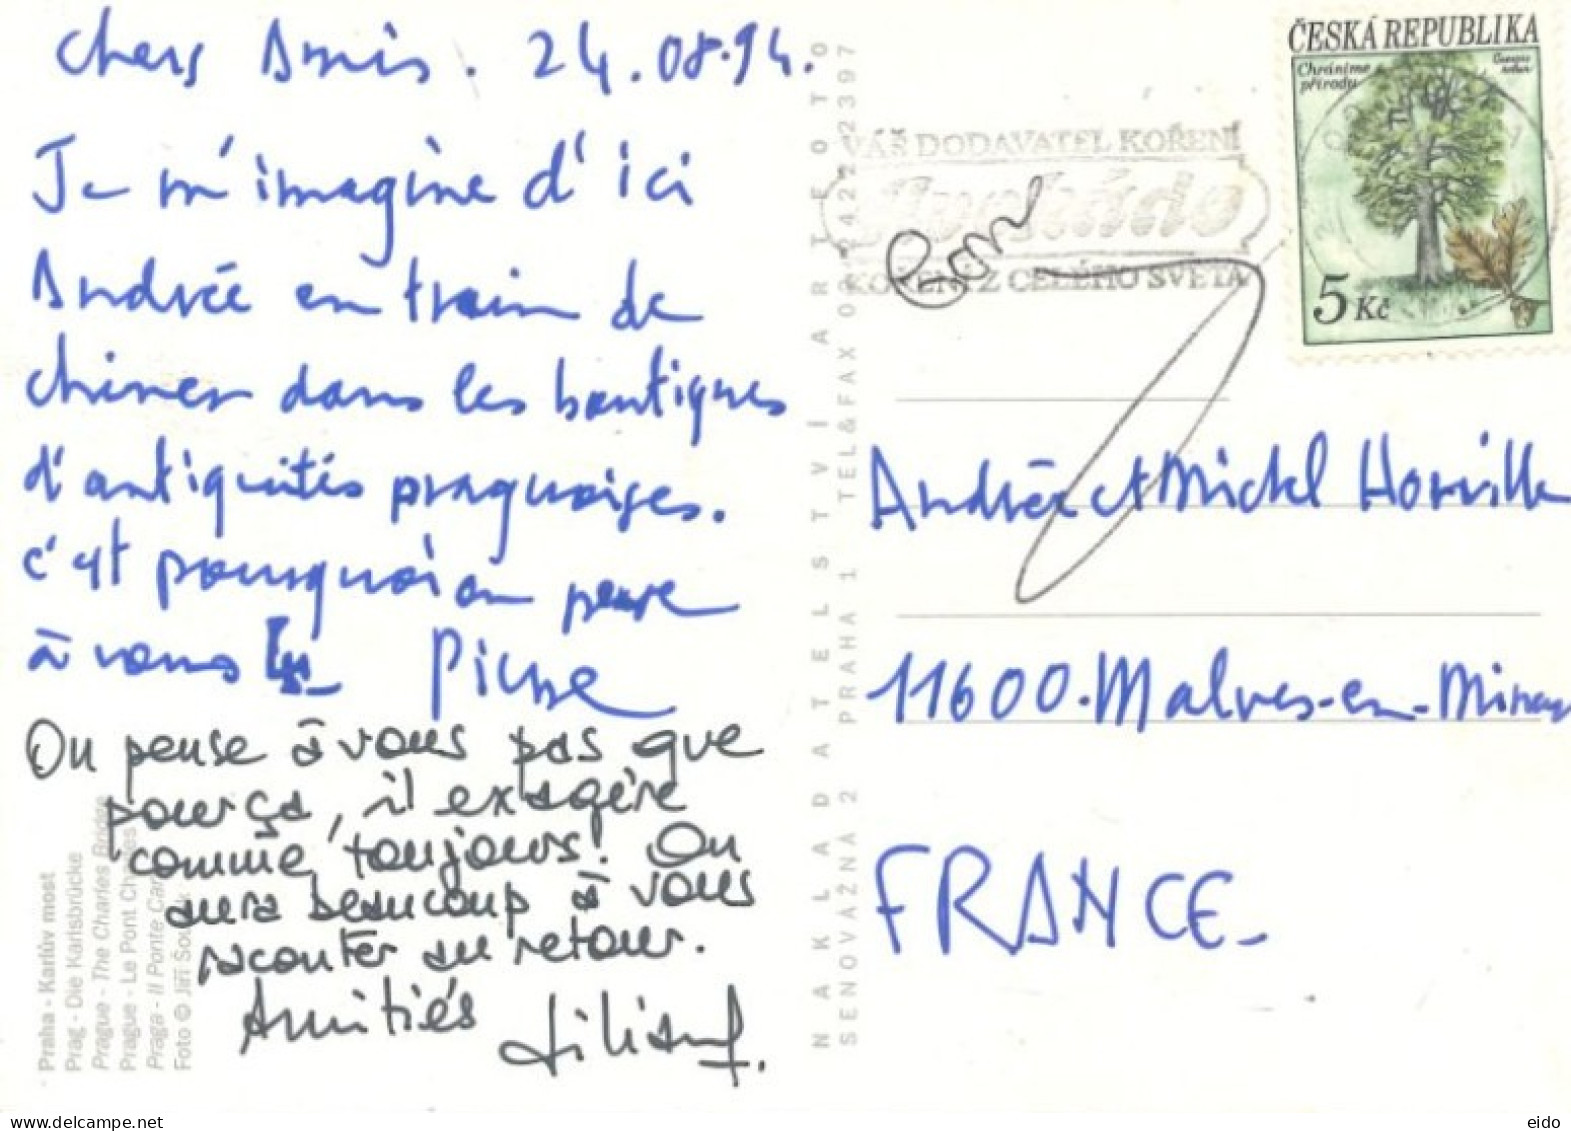 Chers Amis. 24.08.94.
Je m'imagine d'ici
Andrée en train de
chiner dans les boutiques
d'antiquités praguoises.
C'est pourquoi on pense
à vous Pierre
On pense à vous pas que
pour ça, il exagère
comme toujours! On
aura beaucoup à vous
raconter au retour.
Amitiés
Liliane.
Praha - Karlův most
Prag - Die Karlsbrücke
Prague - The Charles Bridge
Prague - Le Pont Charles
Praga - Il Ponte
Foto © Jiří
NAKLADATELSTVÍ ARTFOTO
SENOVÁŽNÁ 2 PRAHA 1 TEL&FAX 02 24222397
VÁŠ DODAVATEL KOŘENÍ
KOŘENÍ Z CELÉHO SVĚTA
ČESKÁ REPUBLIKA
Chráníme
přírodu
5 Kč
Andrée et Michel
11600-Malves-en-
FRANCE-
eido
delcampe.net